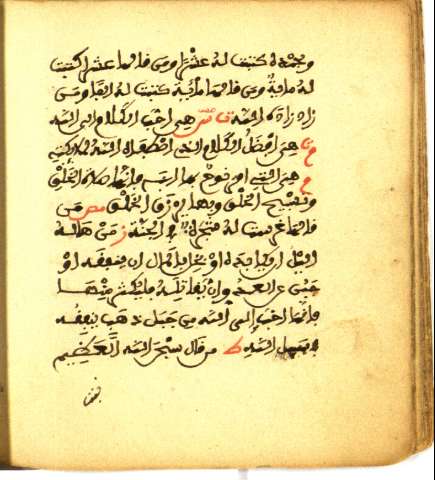 وبحمده كتبت له عشرا ومن قالها عشرا كتبت
له مائة ومن قالها مائة كتبت له الفا ومن
زاد زاده الله ت س هي احب الكلام الى الله
م هي افضل الكلام الذي اصطفى الله لملائكته
م هي التي امر نوح بها ابنه فإنها صلاة الخلق
وتسبيح الخلق وبها يرزق الخلق مص من
قالها غرست له شجرة في الجنة ز من هاله
اليل ان يكابده او بخل بالمال ان ينفقه او
جبن عن العدو ان يقاتله فليكثر منها
فإنها احب الى الله من جبل ذهب ينفقه
في سبيل الله ط من قال سبحن الله العظيم